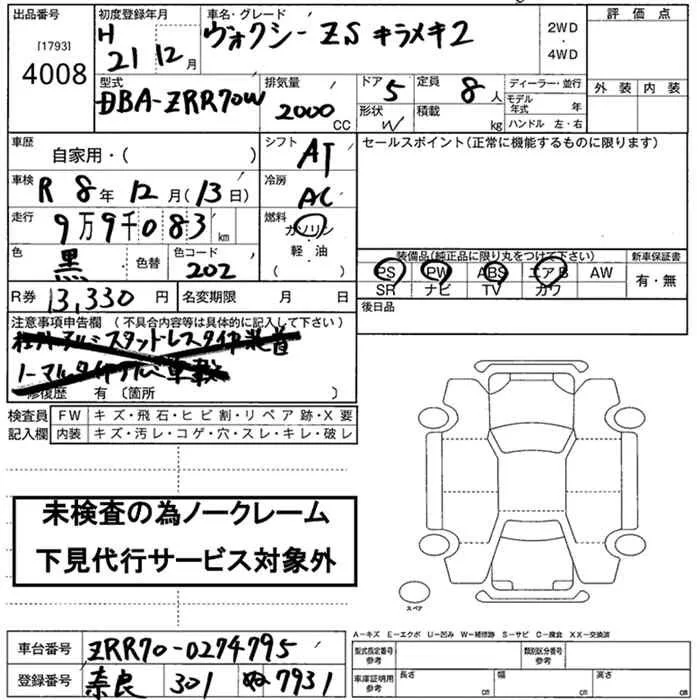 出品番号
[1793]
4008
初度登録年月
H 21 12 月
車名・グレード
ヴォクシー ZS キラメキ2
2WD
・
4WD
評価点
外装 内装
型式
DBA-ZRR70W
排気量
2000 CC
ドア 5
形状 W
定員 8 人
積載 kg
ディーラー・並行
モデル年式 年
ハンドル 左・右
車歴
自家用・( )
シフト
AT
セールスポイント(正常に機能するものに限ります)
車検
R 8年 12月(13日)
冷房
AC
走行
9万9千083 km
燃料
ガソリン
軽・油
( )
色
黒
色替
色コード
202
装備品(純正品に限り丸をつけて下さい)
PS PW ABS エアB AW
SR ナビ TV カワ
新車保証書
有・無
R券 13,330 円
名変期限 月 日
後日品
注意事項申告欄 (不具合内容等は具体的に記入して下さい)
スタッドレスタイヤ装着
ノーマルタイヤアルミ車載
修復歴 有 〔箇所 〕
検査員記入欄
FW キズ・飛石・ヒビ割・リペア跡・X要
内装 キズ・汚レ・コゲ・穴・スレ・キレ・破レ
未検査の為ノークレーム
下見代行サービス対象外
スペア
A-キズ E-エクボ U-凹み W-補修跡 S-サビ C-腐蝕 XX-交換済
車台番号 ZRR70-0274795
登録番号 奈良 301 ぬ 7931
型式指定番号
参考
類別区分番号
参考
車庫証明用
参考
長さ cm
幅 cm
高さ cm